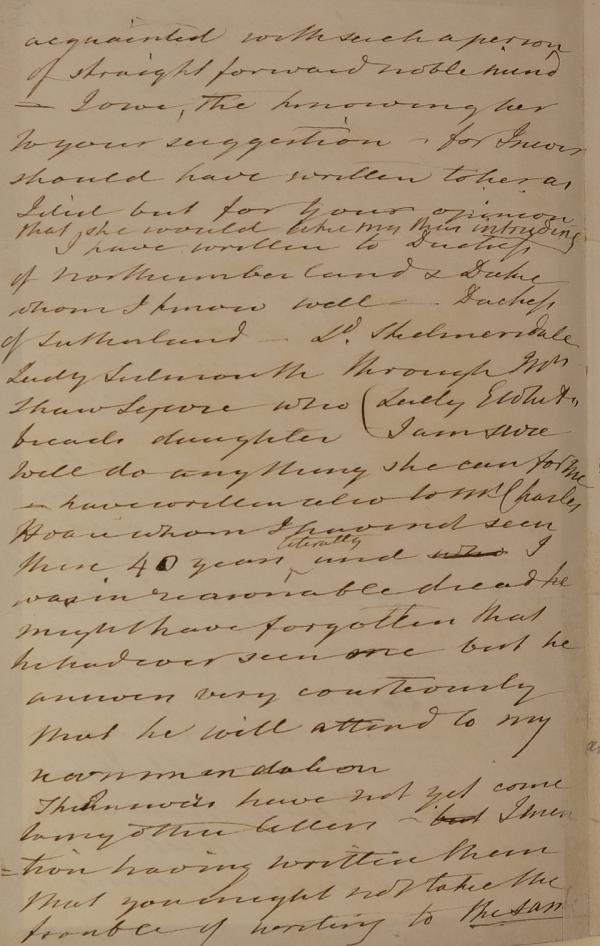 acquainted with such a person
of straight forward noble mind
— I owe, the knowing her
to your suggestion - for I never
should have written to her as
I did but for your opinion
that she would like my thus intruding
I have written to Duchess
of Northumberland & Duke
whom I know well — Duchess
of Sutherland — Ld. Skelmersdale
Lady through Mrs
Shaw Lefevre who (Lady
daughter I am sure
will do anything she can for me
— have written also to Mr Charles
Hoare whom I have not seen
these 40 years literally and who I
was in reasonable dread he
might have forgotten that
he had ever seen me but he
answers very courteously
that he will attend to my
recommendation
The answers have not yet come
to my other letters - but I men
=tion having written them
that you might not take the
trouble of writing to the sam